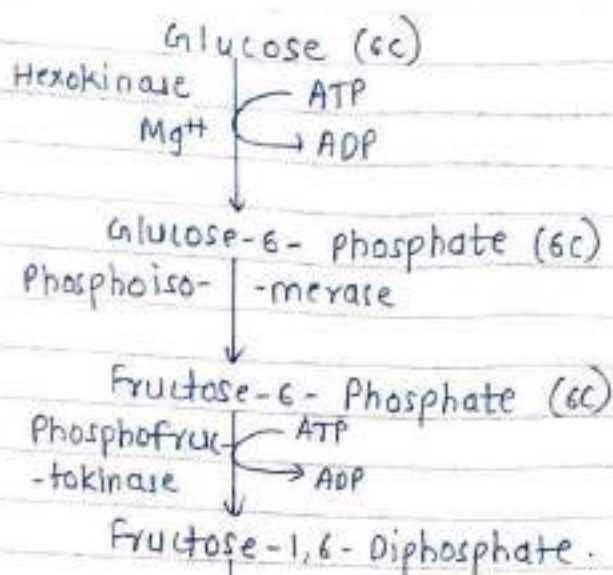 Glucose (6C)
Hexokinase ATP
Mg++ ADP
Glucose-6- phosphate (6C)
Phosphoiso- -merase
Fructose-6- Phosphate (6C)
Phosphofruc- ATP
-tokinase ADP
Fructose-1,6- Diphosphate.